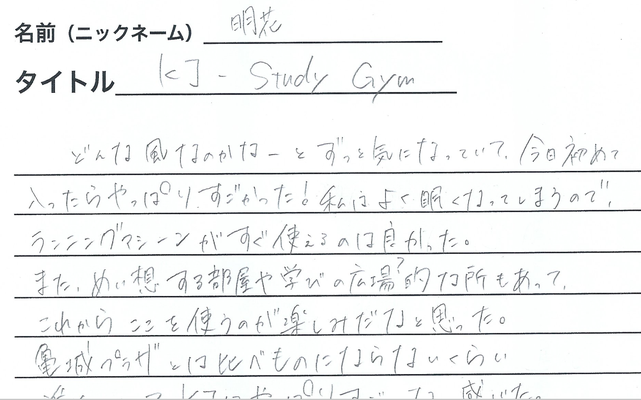 名前（ニックネーム） 明花
タイトル KJ - Study Gym
どんな風なのかなーとずっと気になっていて、今日初めて
入ったらやっぱりすごかった！私はよく眠くなってしまうので、
ランニングマシーンがすぐ使えるのは良かった。
また、めい想する部屋や学びの広場?的な所もあって、
これからここを使うのが楽しみだなと思った。
亀城プラザとは比べものにならないくらい